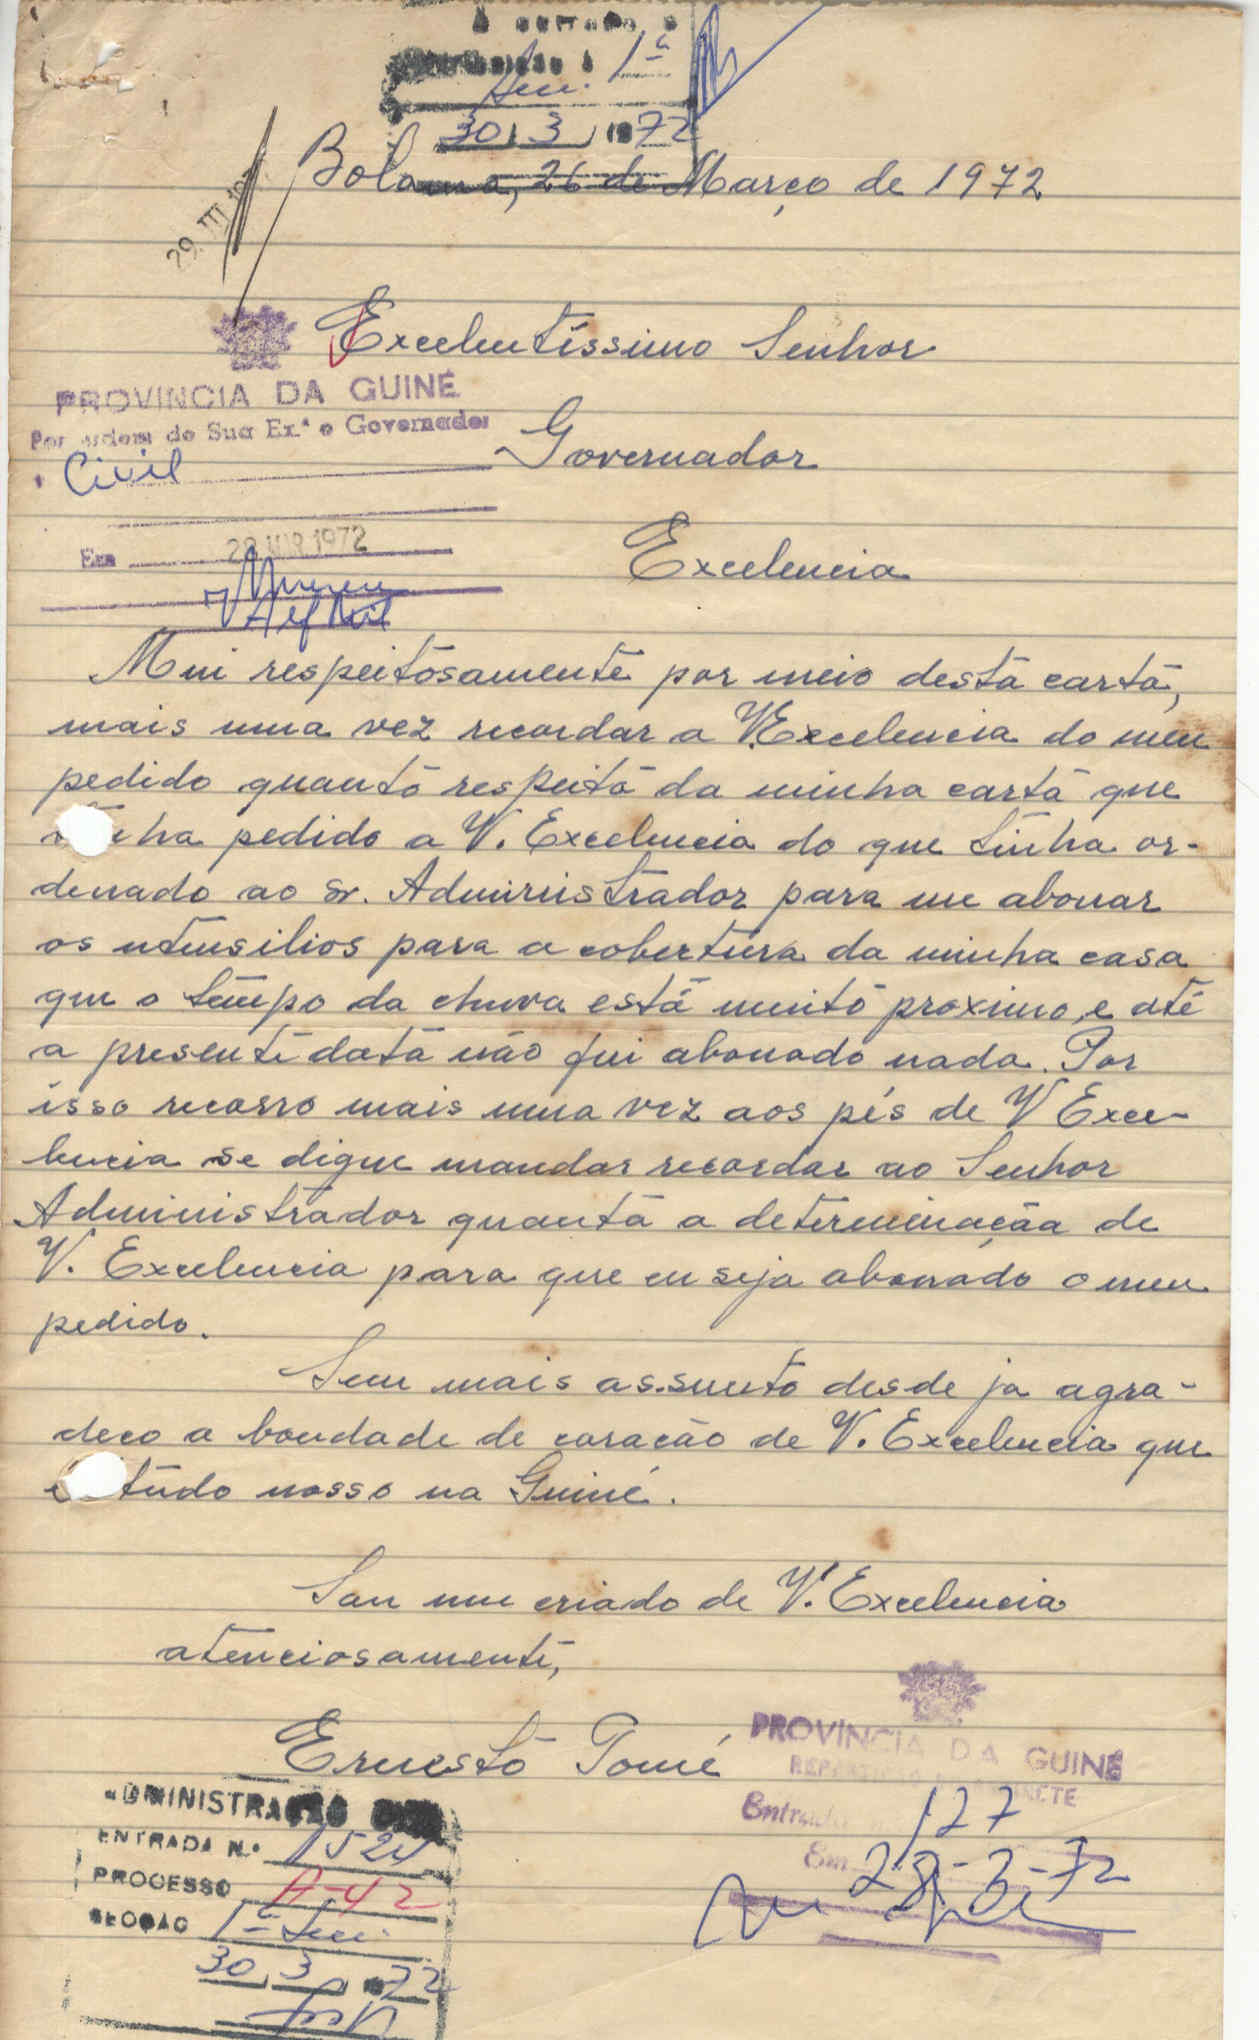 1ª
30 3 1972
Bolama, 26 de Março de 1972
29 III
Excelentíssimo Senhor
PROVINCIA DA GUINÉ
Por ordem de Sua Ex.ª o Governador
Governador
Civil
Em 28 MAR. 1972
Excelencia
Mui respeitosamente por meio desta carta,
mais uma vez recordar a V. Excelencia do meu
pedido quanto respeito da minha carta que
pedido a V. Excelencia do que tinha or-
denado ao Sr. Administrador para me abonar
os utensilios para a cobertura da minha casa
que o tempo da chuva está muito proximo, e até
a presente data não fui abonado nada. Por
isso recorro mais uma vez aos pés de V Exce-
lencia se digne mandar recordar ao Senhor
Administrador quanta a determinaçãa de
V. Excelencia para que eu seja abonado o meu
pedido.
Sem mais assunto desde ja agra-
deço a bondade de coração de V. Excelencia que
tudo nosso na Guiné.
Sou um criado de V. Excelencia
atenciosamente,
Ernesto Tomé
PROVINCIA DA GUINÉ
ADMINISTRAÇÃO
Entrada 127
ENTRADA N.º 1524
Em 28-3-72
PROCESSO A-42
SECÇÃO 1ª Sec.
30 3 1972